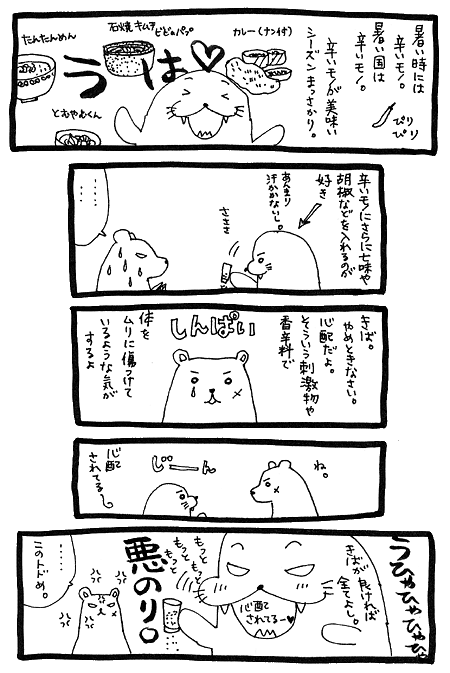 暑い時には
辛いモノ。
暑い国は
辛いモノ。
ぴり
ぴり
辛いモノが美味い
シーズンまっさかり。
カレー(ナン付)
石焼キムチ
ビビンバッブ
たんたんめん
とむやむくん
うは♡
辛いモノにさらに七味や
胡椒などを入れるのが
好き
あんまり
汗かかないし。
ささささ
・・・・
きば。
やめときなさい。
心配だよ。
そういう刺激物や
香辛料で
しんぱい
体を
ムリに傷つけて
いるような気が
するよ
ね。
じーーん
心配
されてるし
うひゃひゃひゃひゃ
きばが良ければ
全てよし。
心配
されてるー♥
もっと
もっと
もっと
もっと
悪のり。
・・・・・
このトドめ。